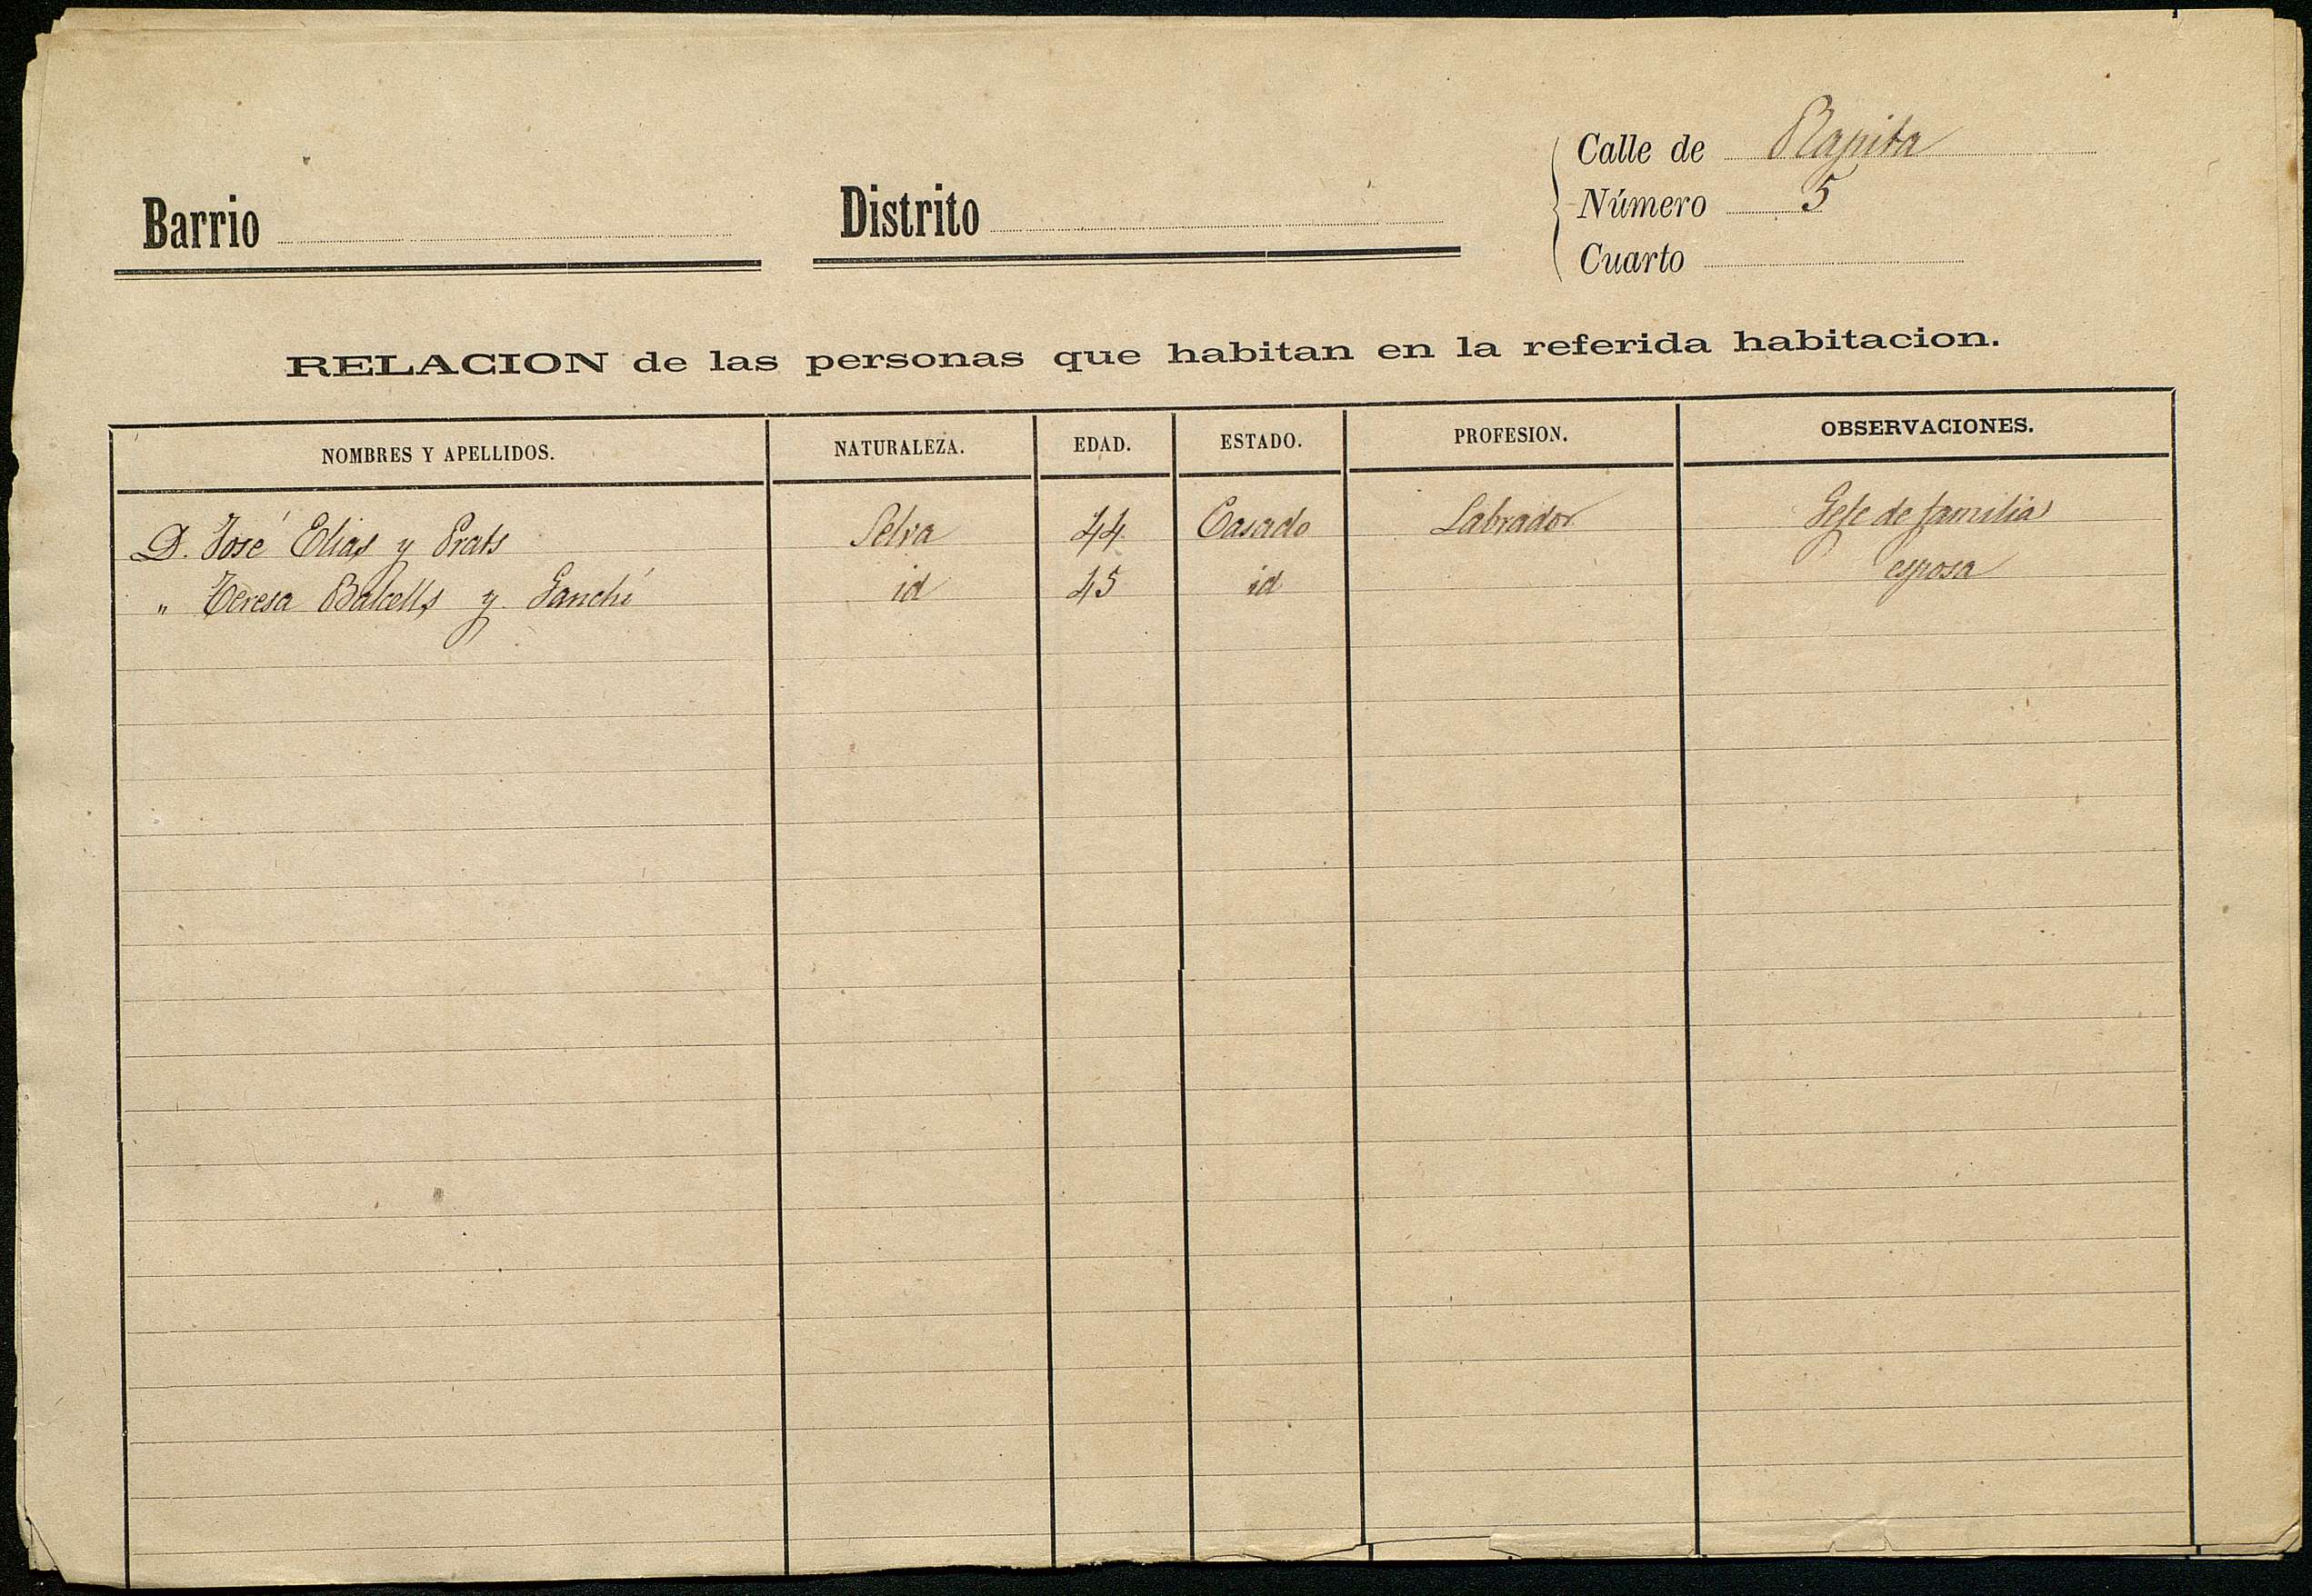 Calle de Rapita
Número 5
Cuarto
Barrio
Distrito
RELACION de las personas que habitan en la referida habitacion.
NOMBRES Y APELLIDOS. NATURALEZA. EDAD. ESTADO. PROFESION. OBSERVACIONES.
D. José Elias y Prats Selva 44 Casado Labrador Gefe de familia
" Teresa Balcells y id 45 id esposa